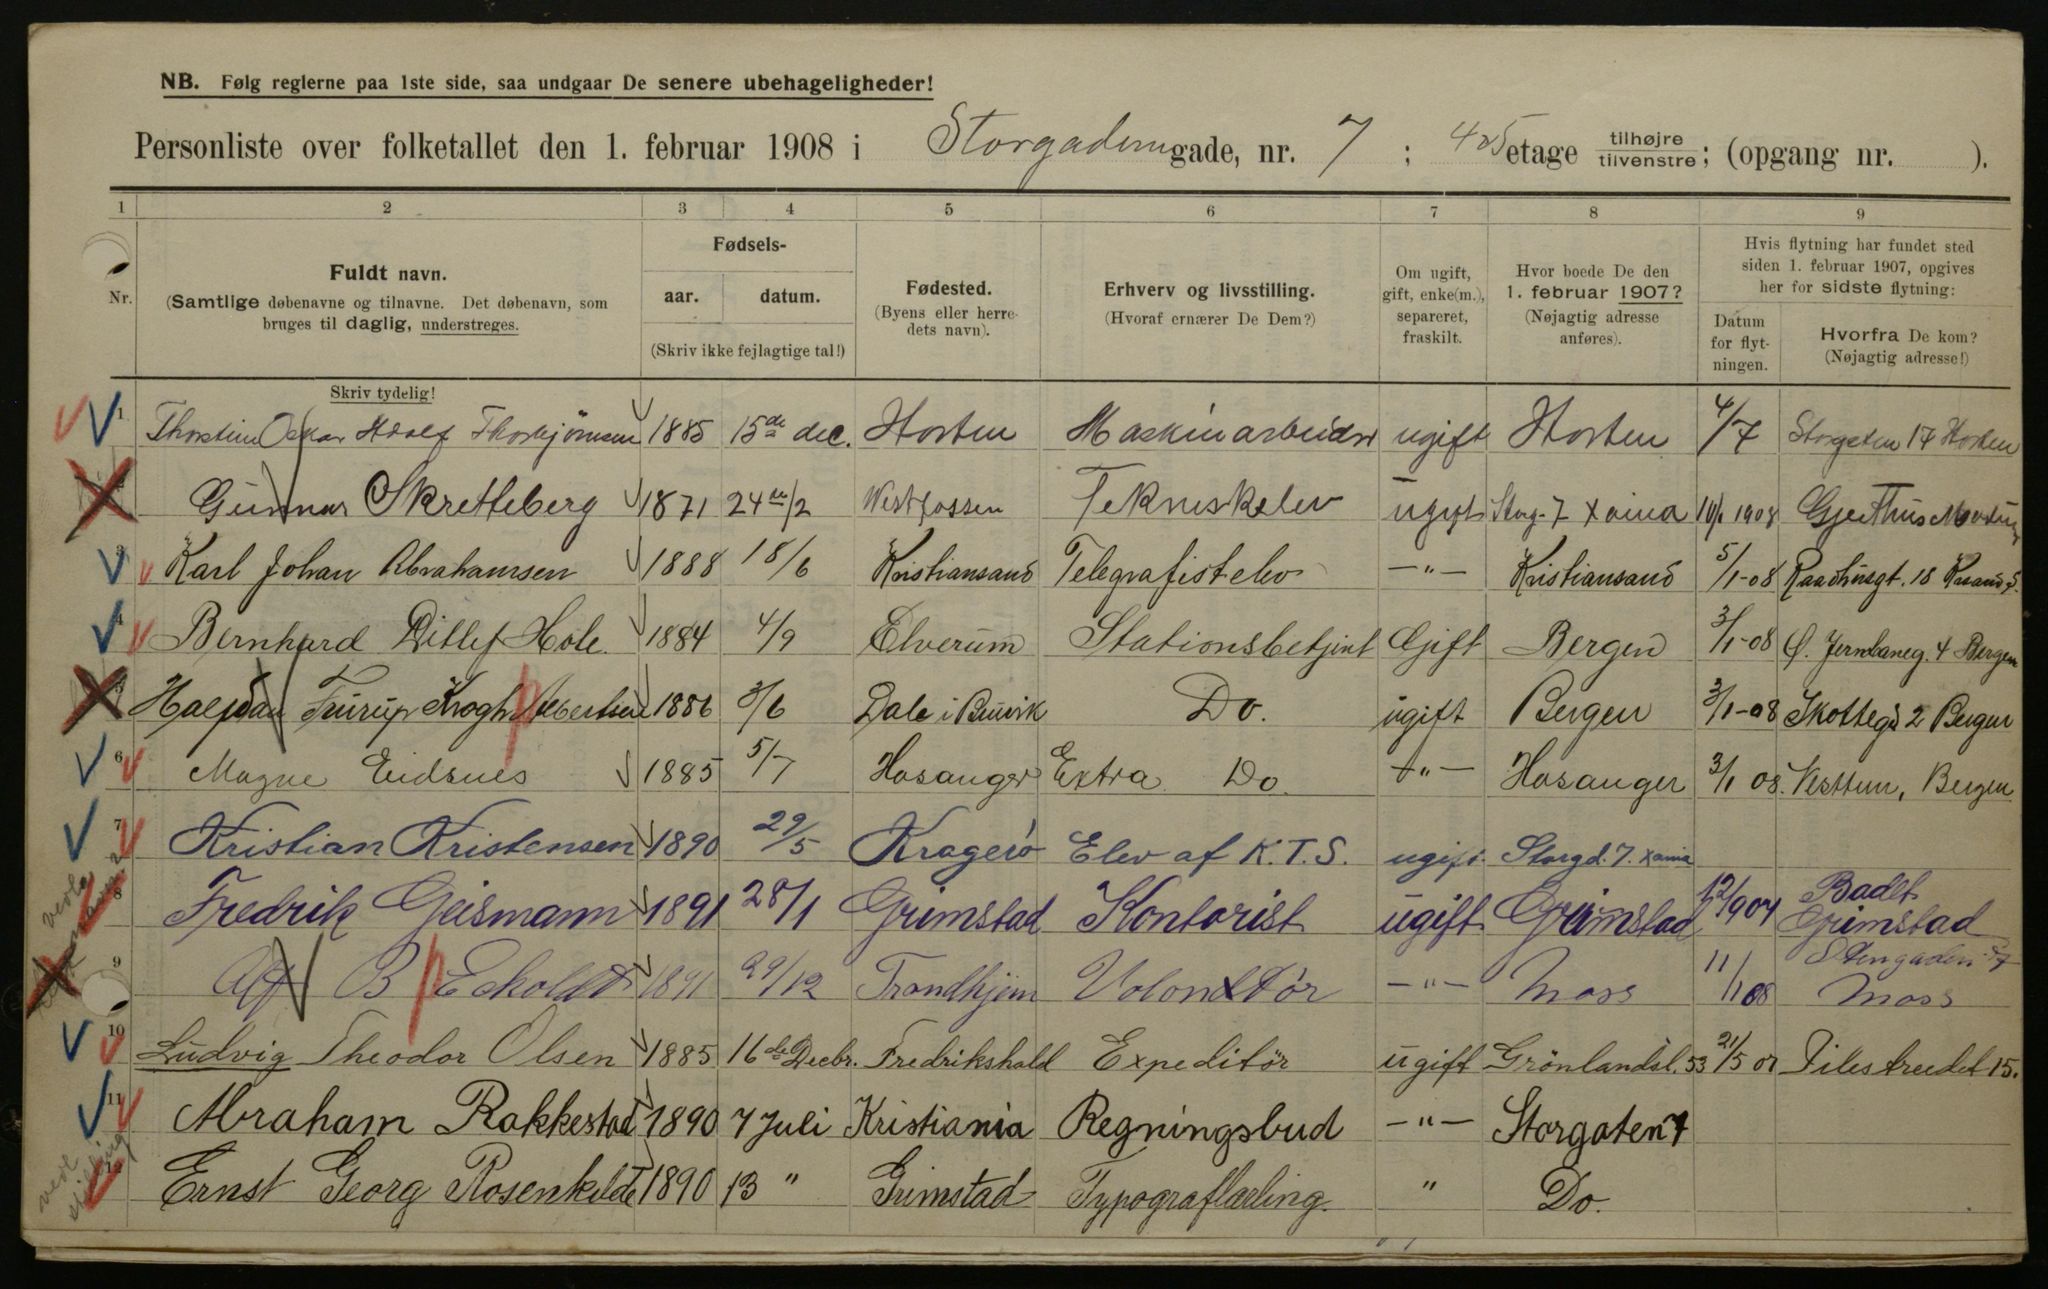 NB. Følg reglerne paa 1ste side, saa undgaar De senere ubehageligheder!
Personliste over folketallet den 1. februar 1908 i Storgaden gade, nr. 7 ; 4 etage tilhøjre tilvenstre; (opgang nr. ).
1 2 3 4 5 6 7 8 9
Nr.
Fuldt navn.
(Samtlige døbenavne og tilnavne. Det døbenavn, som
bruges til daglig, understreges.
Skriv tydelig!
Fødsels-
aar. datum.
(Skriv ikke fejlagtige tal!)
Fødested.
(Byens eller herre-
dets navn).
Erhverv og livsstilling.
(Hvoraf ernærer De Dem?)
Om ugift,
gift, enke(m.),
separeret,
fraskilt.
Hvor boede De den
1. februar 1907?
(Nøjagtig adresse
anføres).
Hvis flytning har fundet sted
siden 1. februar 1907, opgives
her for sidste flytning:
Datum
for flyt-
ningen.
Hvorfra De kom?
(Nøjagtig adresse!)
1 Oskar Adolf 1885 15de dec. Horten Maskinarbeider ugift Horten 4/7 Storgaten 17 Horten
2 Gunnar Skretteberg 1871 24de/2 Vestfossen Teknisk elev ugift Storg. 7 Xania 10/1 1908 Gjethus Modum
3 Karl Johan Abrahamsen 1888 18/6 Kristiansand Telegrafistelev —"— Kristiansand 5/1-08 Raadhusgt. 18 Krsand S.
4 Bernhard Ditlef Hole. 1884 4/9 Elverum Stationsbetjent Gift Bergen 3/1-08 Ø. Jernbaneg. 4 Bergen
5 Halfdan Krogh 1886 3/6 Dale i Bruvik Do. ugift Bergen 3/1-08 Skotteg. 2 Bergen
6 Magne Eidsnes 1885 5/7 Hosanger Extra Do —"— Hosanger 3/1 08. Nesttun, Bergen
7 Kristian Kristensen 1890 29/5 Kragerö Elev af K.T.S. ugift Storgd. 7. Xania
8 Fredrik Geismann 1891 28/1 Grimstad Kontorist ugift Grimstad 12/9 07 Badet Grimstad
9 Alf B Eckoldt 1891 29/12 Trondhjem Volontör —"— Moss 11/1 08 Moss
10 Ludvig Theodor Olsen 1885 16de Decbr. Fredrikshald Expeditör ugift Grönlandsl. 53 21/5 07 Pilestredet 15.
11 Abraham Rakkestad 1890 7 Juli Kristiania Regningsbud —"— Storgaten 7
12 Ernst Georg Rosenkilde 1890 13 " Grimstad Typograflærling. " Do.